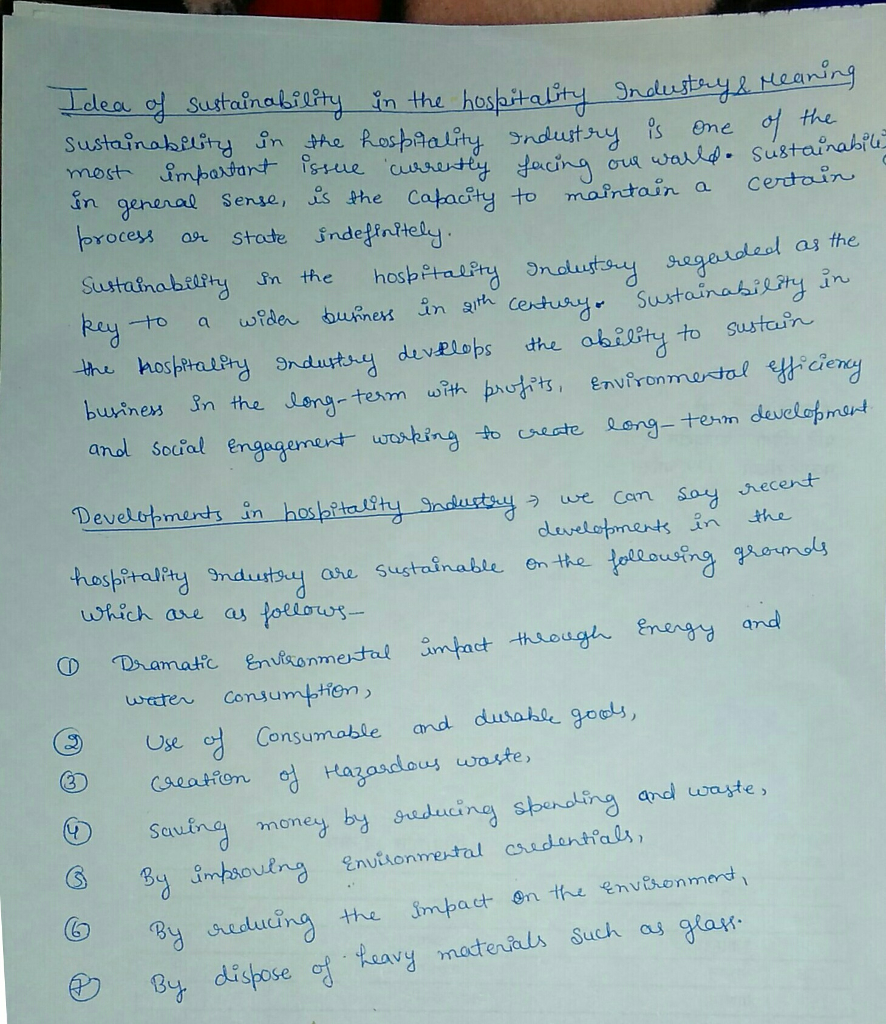 Idea of sustainability in the hospitality Industry & Meaning
Sustainability in the hospitality Industry is one of the
most important issue currently facing our world. Sustainabili
in general sense, is the capacity to maintain a certain
process or state indefinitely.
Sustainability in the hospitality Industry regarded as the
key to a wider business in 21th century. Sustainability in
the hospitality Industry develops the ability to sustain
business in the long-term with profits, Environmental efficiency
and social Engagement working to create long-term development
Developments in hospitality Industry → we can say recent
developments in the
hospitality Industry are sustainable on the following grounds
which are as follows—
① Dramatic Environmental impact through Energy and
water consumption,
② Use of Consumable and durable goods,
③ Creation of Hazardous waste,
④ Saving money by reducing spending and waste,
⑤ By improving Environmental credentials,
⑥ By reducing the impact on the Environment,
⑦ By dispose of heavy materials such as glass.